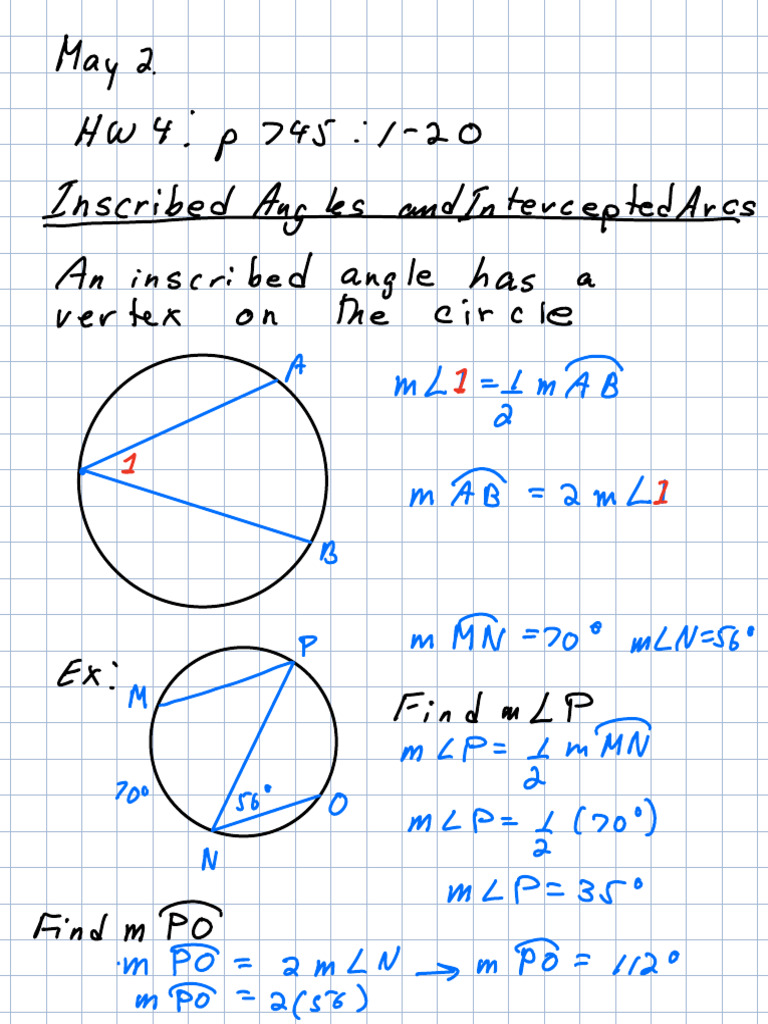 May 2.
HW 4: p 745: 1-20
Inscribed Angles and Intercepted Arcs
An inscribed angle has a
vertex on the circle
A
1
B
m∠1 = 1/2 m⌒AB
m⌒AB = 2 m∠1
m⌒MN = 70° m∠N = 56°
Ex:
M
P
70°
56°
O
N
Find m∠P
m∠P = 1/2 m⌒MN
m∠P = 1/2 (70°)
m∠P = 35°
Find m⌒PO
m⌒PO = 2 m∠N → m⌒PO = 112°
m⌒PO = 2(56)